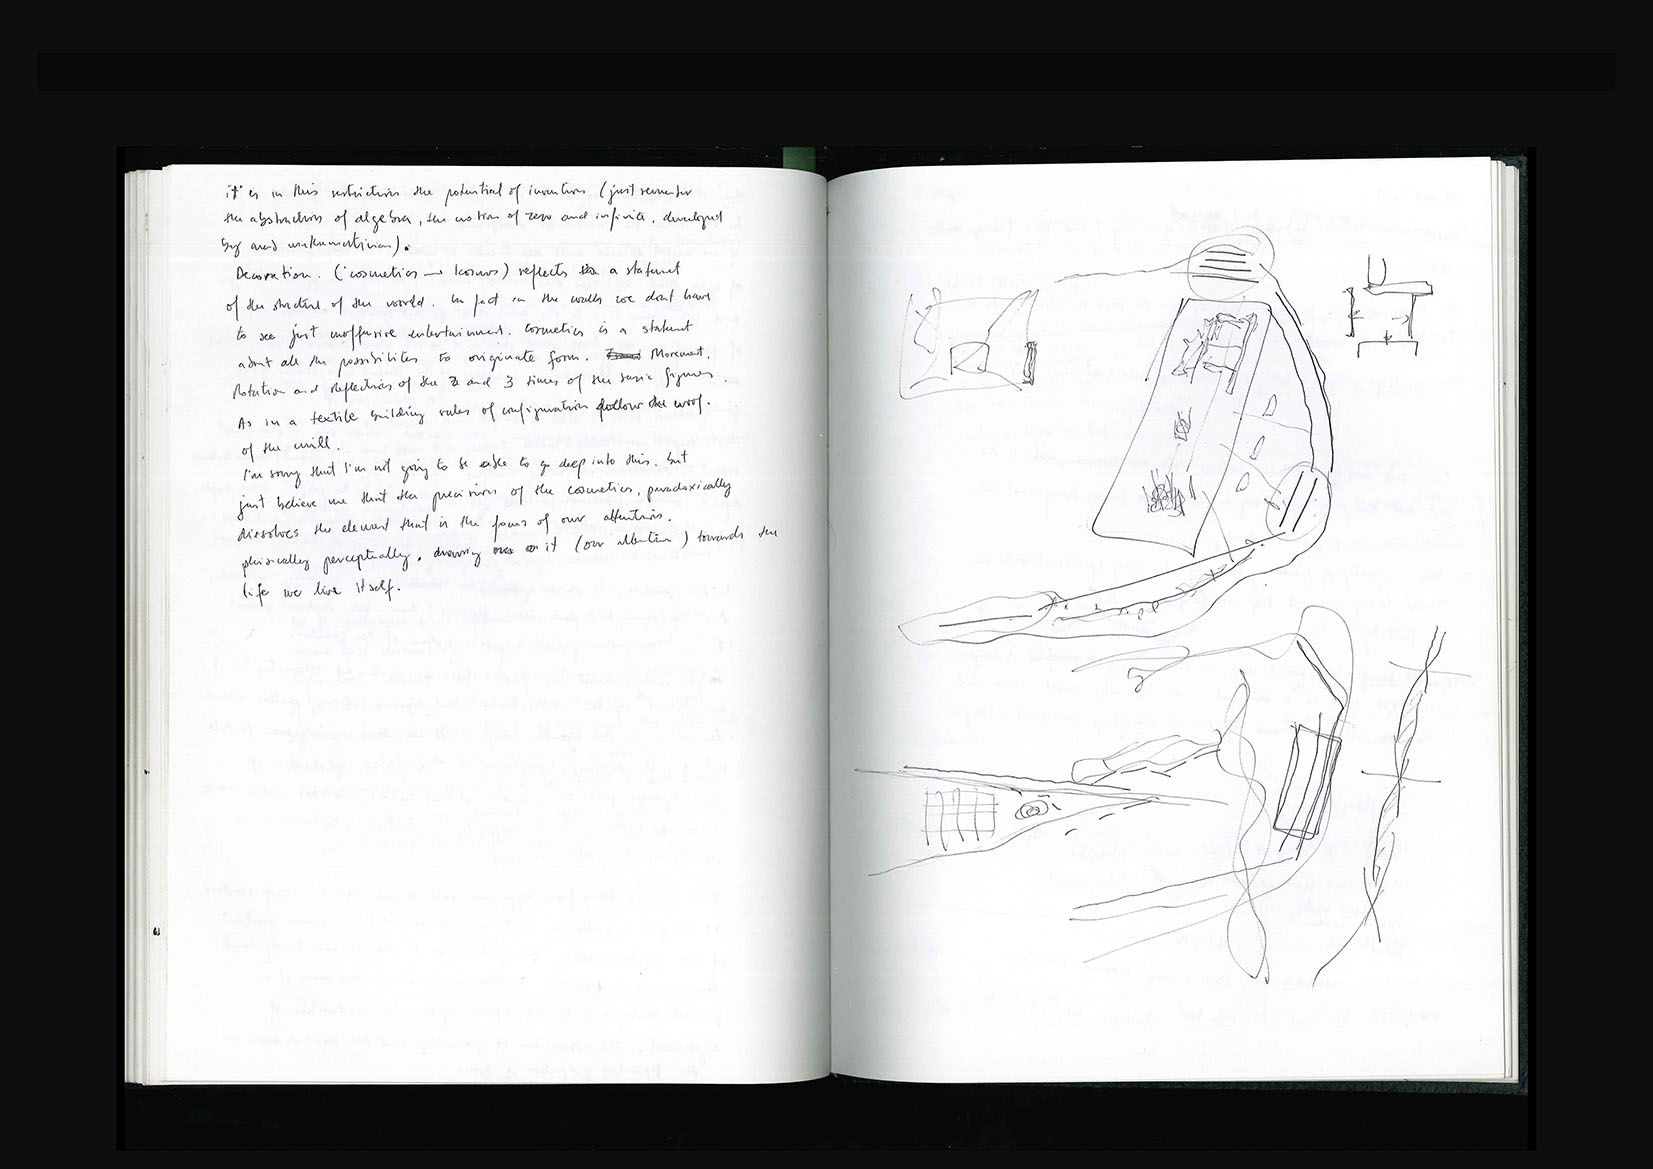 it is in this restriction the potential of invention (just remember
the abstraction of algebra, the notion of zero and infinite, developed
by arab mathematicians).
Decoration. (cosmetics – kosmos) reflects a statment
of the structure of the world. In fact in the walls we dont have
to see just inoffensive entertainment. Cosmetics is a statment
about all the possibilites to originate form. Movement.
Rotation and reflection of the 2 and 3 times of the basic figures.
As in a textile building rules of configuration follow the woof.
of the
I'm sorry that I'm not going to be able to go deep into this. but
just believe me that the precision of the cosmetics, paradoxically
dissolves the element that is the focus of our attention.
phisically perceptually. drawing it (our attention) towards the
life we live itself.